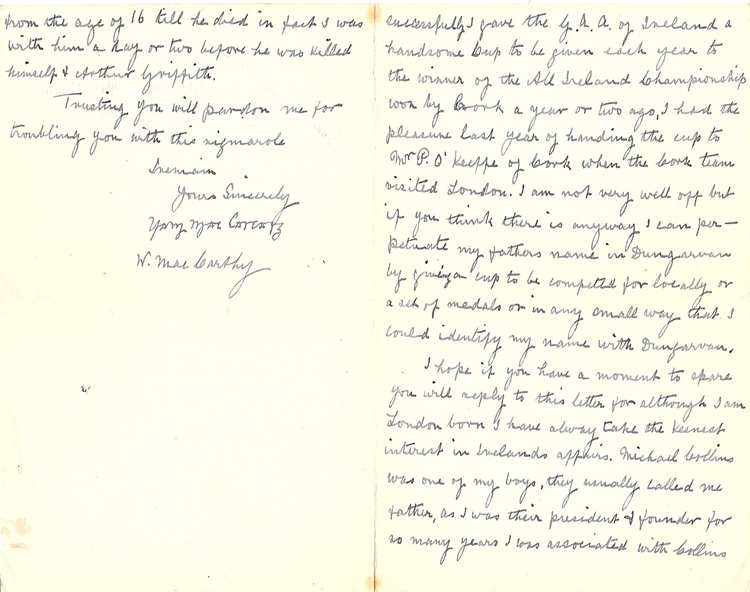 successfully I gave the G.A.A. of Ireland a
handsome Cup to be given each year to
the winner of the All Ireland Championship
won by Cork a year or two ago, I had the
pleasure last year of handing the cup to
Mr P. O'Keeffe of Cork when the Cork team
visited London. I am not very well off but
if you think there is anyway I can per-
petuate my fathers name in Dungarvan
by giving a cup to be competed for locally or
a set of medals or in any small way that I
could identify my name with Dungarvan.
I hope if you have a moment to spare
you will reply to this letter for although I am
London born I have alway take the keenest
interest in Irelands affairs. Michael Collins
was one of my boys, they usually called me
father, as I was their president & founder for
so many years I was associated with Collins
from the age of 16 till he died in fact I was
with him a day or two before he was killed
himself & Arthur Griffith.
Trusting you will pardon me for
troubling you with this rigmarole
I remain
Yours Sincerely
Mac
W. Mac Carthy